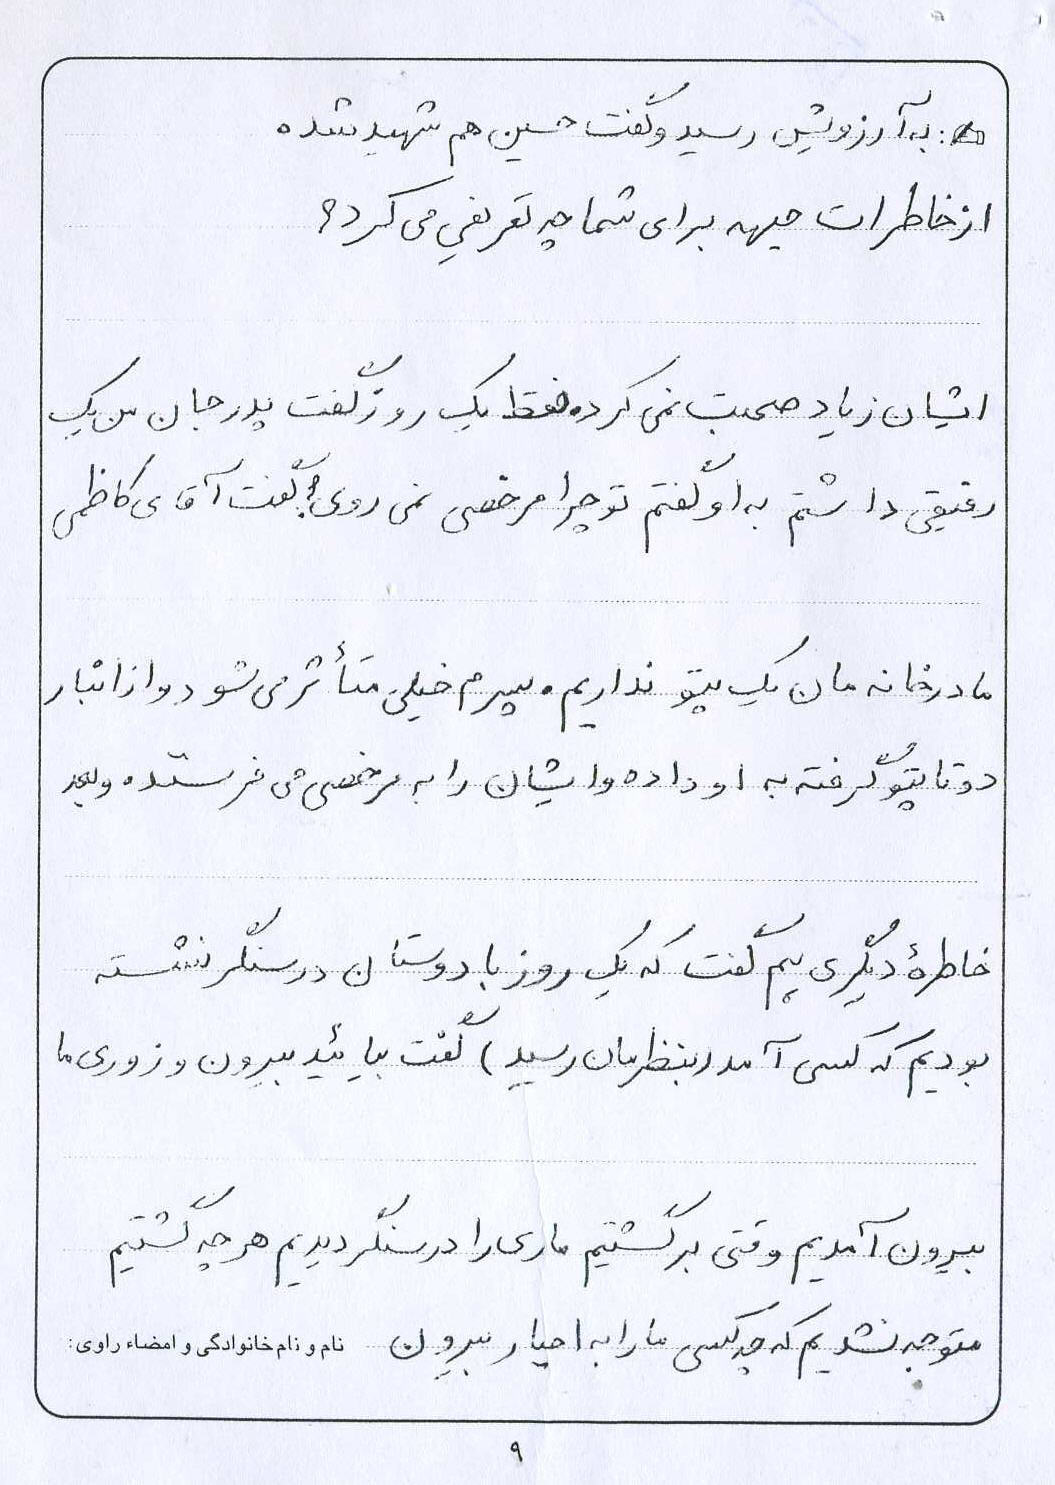 به آرزویش رسید و گفت حسین هم شهید شده
از خاطرات جبهه برای شما چه تعریفی می کرد؟
ایشان زیاد صحبت نمی کرده فقط یک روز گفت پدر جان من یک
رفیقی داشتم به او گفتم تو چرا مرخصی نمی روی؟ گفت آقای کاظمی
ما در خانه مان یک پتو نداریم. پسرم خیلی متأثر می شود و از انبار
دو تا پتو گرفته به او داده و ایشان را به مرخصی می فرستده و بعد
خاطرهٔ دیگری بهم گفت که یک روز با دوستان در سنگر نشسته
بودیم که کسی آمد (بنظرمان رسید) گفت بیائید بیرون و زوری ما
بیرون آمدیم وقتی برگشتیم ماری را در سنگر دیدیم هر چه گشتیم
متوجه نشدیم که چه کسی ما را به اجبار بیرون
نام و نام خانوادگی و امضاء راوی:
۹